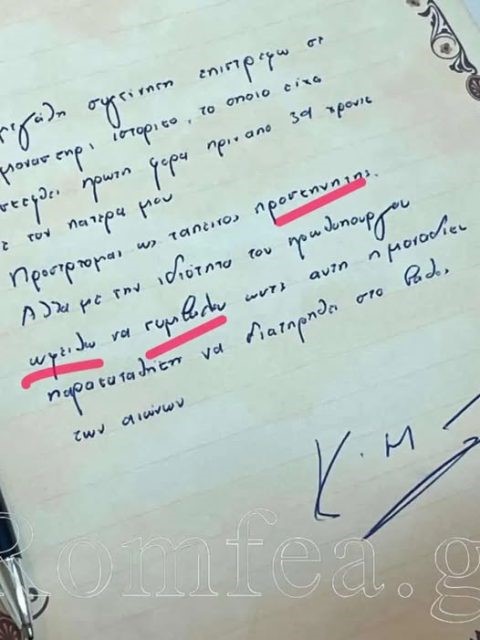 μεγάλη συγκίνηση επιστρεφω σε
μοναστηρι ιστορικο, το οποιο ειχα
σκεφθει πρωτη φορα πριν απο 39 χρονια
ε τον πατερα μου
Προσερχομαι ως ταπεινος προσκηνητης.
Αλλα με την ιδιότητα του πρωθυπουργου
ωφειλω να συμβαλω ωστε αυτη η μοναδικη
παρακαταθηκη να διατηρηθει στο βαθος
των αιωνων
Κ. Μ
Romfea.g